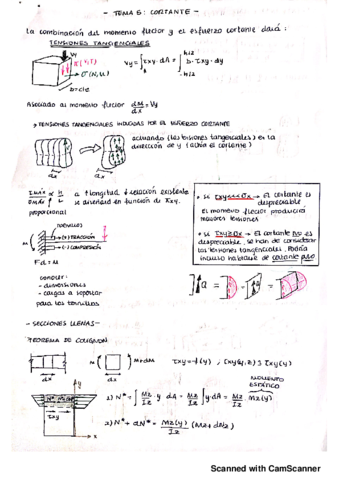 - TEMA 6: CORTANTE -
La combinación del momento flector y el esfuerzo cortante dará:
TENSIONES TANGENCIALES
Vy = ∫ τxy · dA = ∫ b · τxy · dy
h/2
-h/2
A
b=cte
Asociado al momento flector dM/dx = Vy
→ TENSIONES TANGENCIALES INDUCIDAS POR EL ESFUERZO CORTANTE
actuando (las tensiones tangenciales) en la
dirección de y
dx
dx
h
L
a + longitud
se diseñará en función de σxx.
proporcional
TORNILLOS
(+) TRACCIÓN
(-) COMPRESIÓN
M
F·d = M
conocer:
- dimensiones
- cargas a soportar
para los tornillos
• Si τxy<<σx → El cortante es
despreciable.
El momento flector producirá
mayores tensiones
• Si τxy≥σx → El cortante no es
despreciable. Se han de considerar
las tensiones tangenciales. Podría
incluso hablarse de cortante puro
- SECCIONES LLENAS -
TEOREMA DE COLIGNON
dx
M
M+dM
dx
τxy = f(y) ; τxy(y, z) ≅ τxy(y)
MOMENTO
ESTÁTICO
1) N* = ∫ Mz/Iz · y dA = Mz/Iz ∫ y·dA = Mz/Iz · mz(y)
2) N* + dN* = mz(y)/Iz (Mz + dMz)
y
N*
τxy
x
Scanned with CamScanner